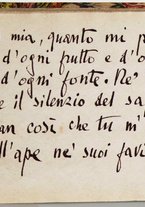 mia, quanto mi p
d'ogni frutto e d'o
d'ogni fonte. Nè
e il silenzio del sa
an così che tu m'
ll'ape ne' suoi favi